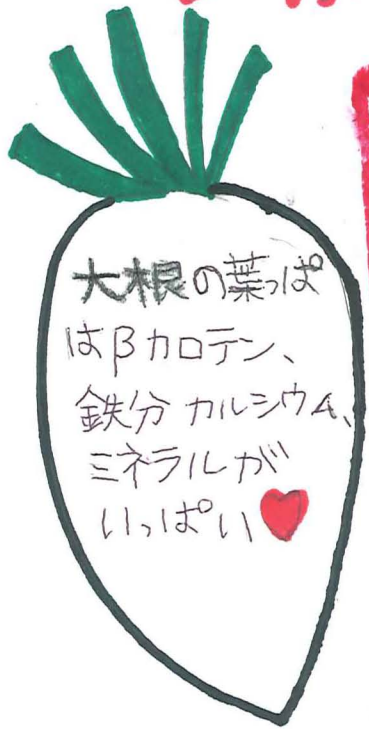 大根の葉っぱ
はβカロテン、
鉄分 カルシウム、
ミネラルが
いっぱい